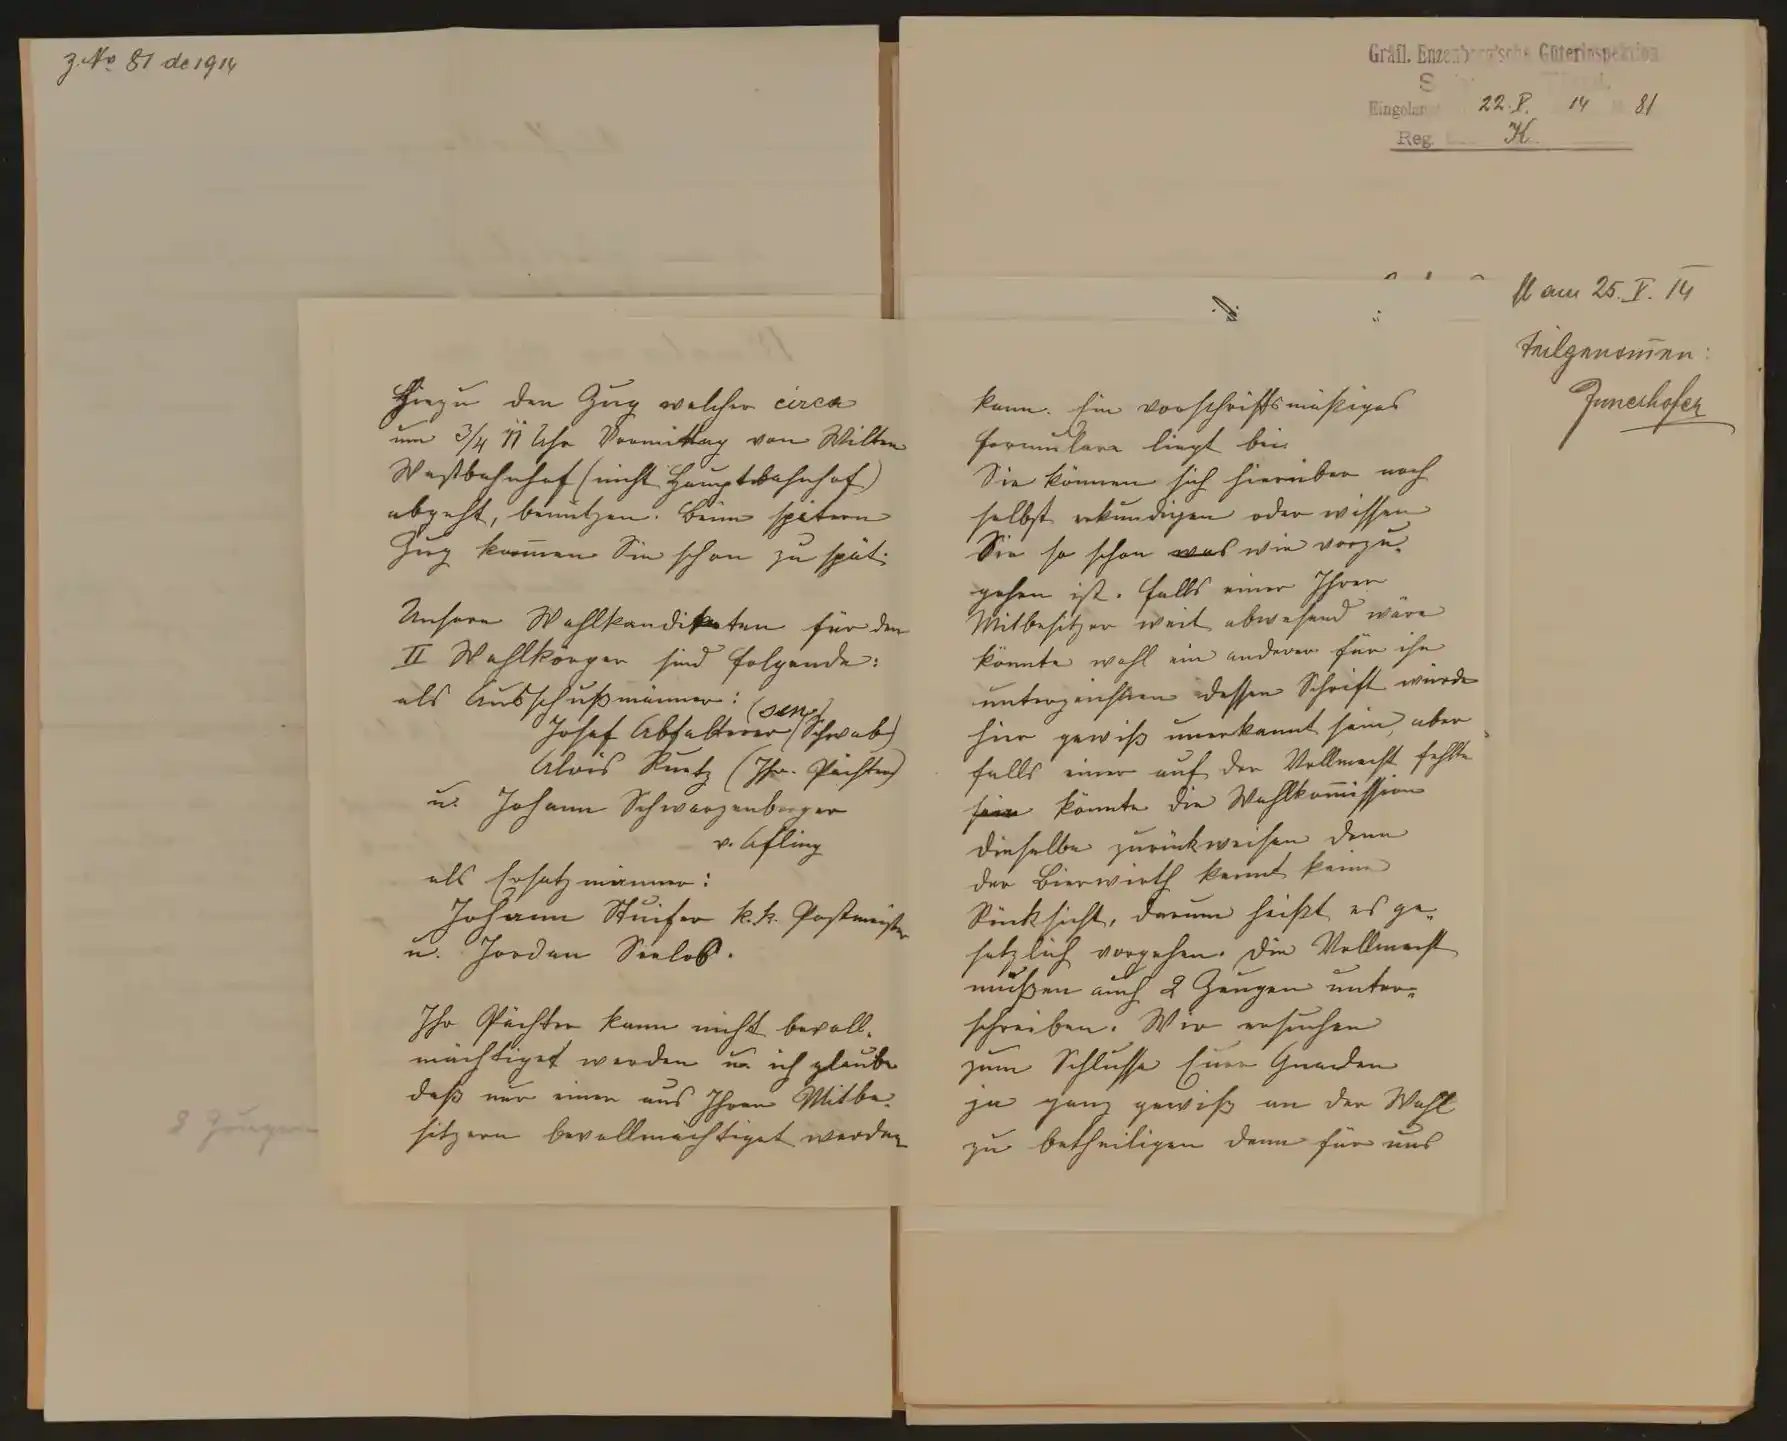 z. No 81 de 1914
Gräfl. Enzenberg'sche Güterinspektion
22. V. 14 81
Reg. K.
am 25. V. 14
teilgenommen:
Hiezu den Zug welcher circa
um 3/4 11 Uhr Vormittag von Wilten
Westbahnhof (nicht Hauptbahnhof)
abgeht, benützen. Beim spätern
Zug kommen Sie schon zu spät.
Unsere Wahlkandidaten für den
II Wahlkörper sind folgende:
als Ausschußmänner:
(sen.)
Josef Abfalterer (Schwab)
Alois Ruetz (Ihr. Pächter)
u. Johann Schwarzenberger
v. Afling
als Ersatzmänner:
Johann Stuifer k.k. Postmeister
u. Jordan Seelos.
Ihr Pächter kann nicht bevoll-
mächtiget werden u. ich glaube
daß nur einen aus Ihren Mitbe-
sitzern bevollmächtiget werden
kann. Ein vorschriftsmäßiges
Formulare liegt bei.
Sie können sich hierüber noch
selbst erkundigen oder wissen
Sie so schon was wie vorzu-
gehen ist. Falls einer Ihrer
Mitbesitzer weit abwesend wäre
könnte wohl ein anderer für ihn
unterzeichnen dessen Schrift würde
hier gewiß unerkannt sein, aber
falls einer auf der Vollmacht fehlte
sein könnte die Wahlkommission
dieselbe zurückweisen denn
der Bierwirth kennt keine
Rücksicht, darum heißt es ge-
setzlich vorgehen. Die Vollmacht
müßen auch 2 Zeugen unter-
schreiben. Wir ersuchen
zum Schlusse Euer Gnaden
ja ganz gewiß an der Wahl
zu betheiligen denn für uns
2 Zeugen